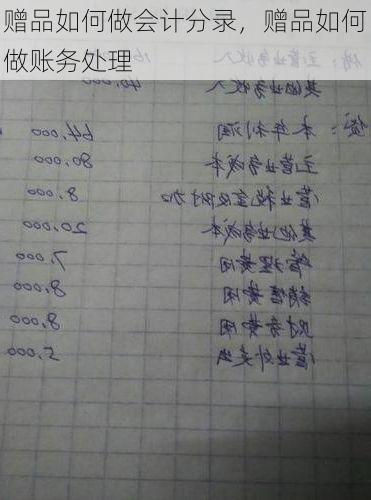 赠品如何做会计分录，赠品如何
做账务处理
借：主营业务收入
其他业务收入 40,000
贷：本年利润 64,000
主营业务成本 80,000
营业税金及附加 8,000
其他业务成本 20,000
管理费用 7,000
销售费用 8,000
财务费用 8,000
营业外支出 5,000